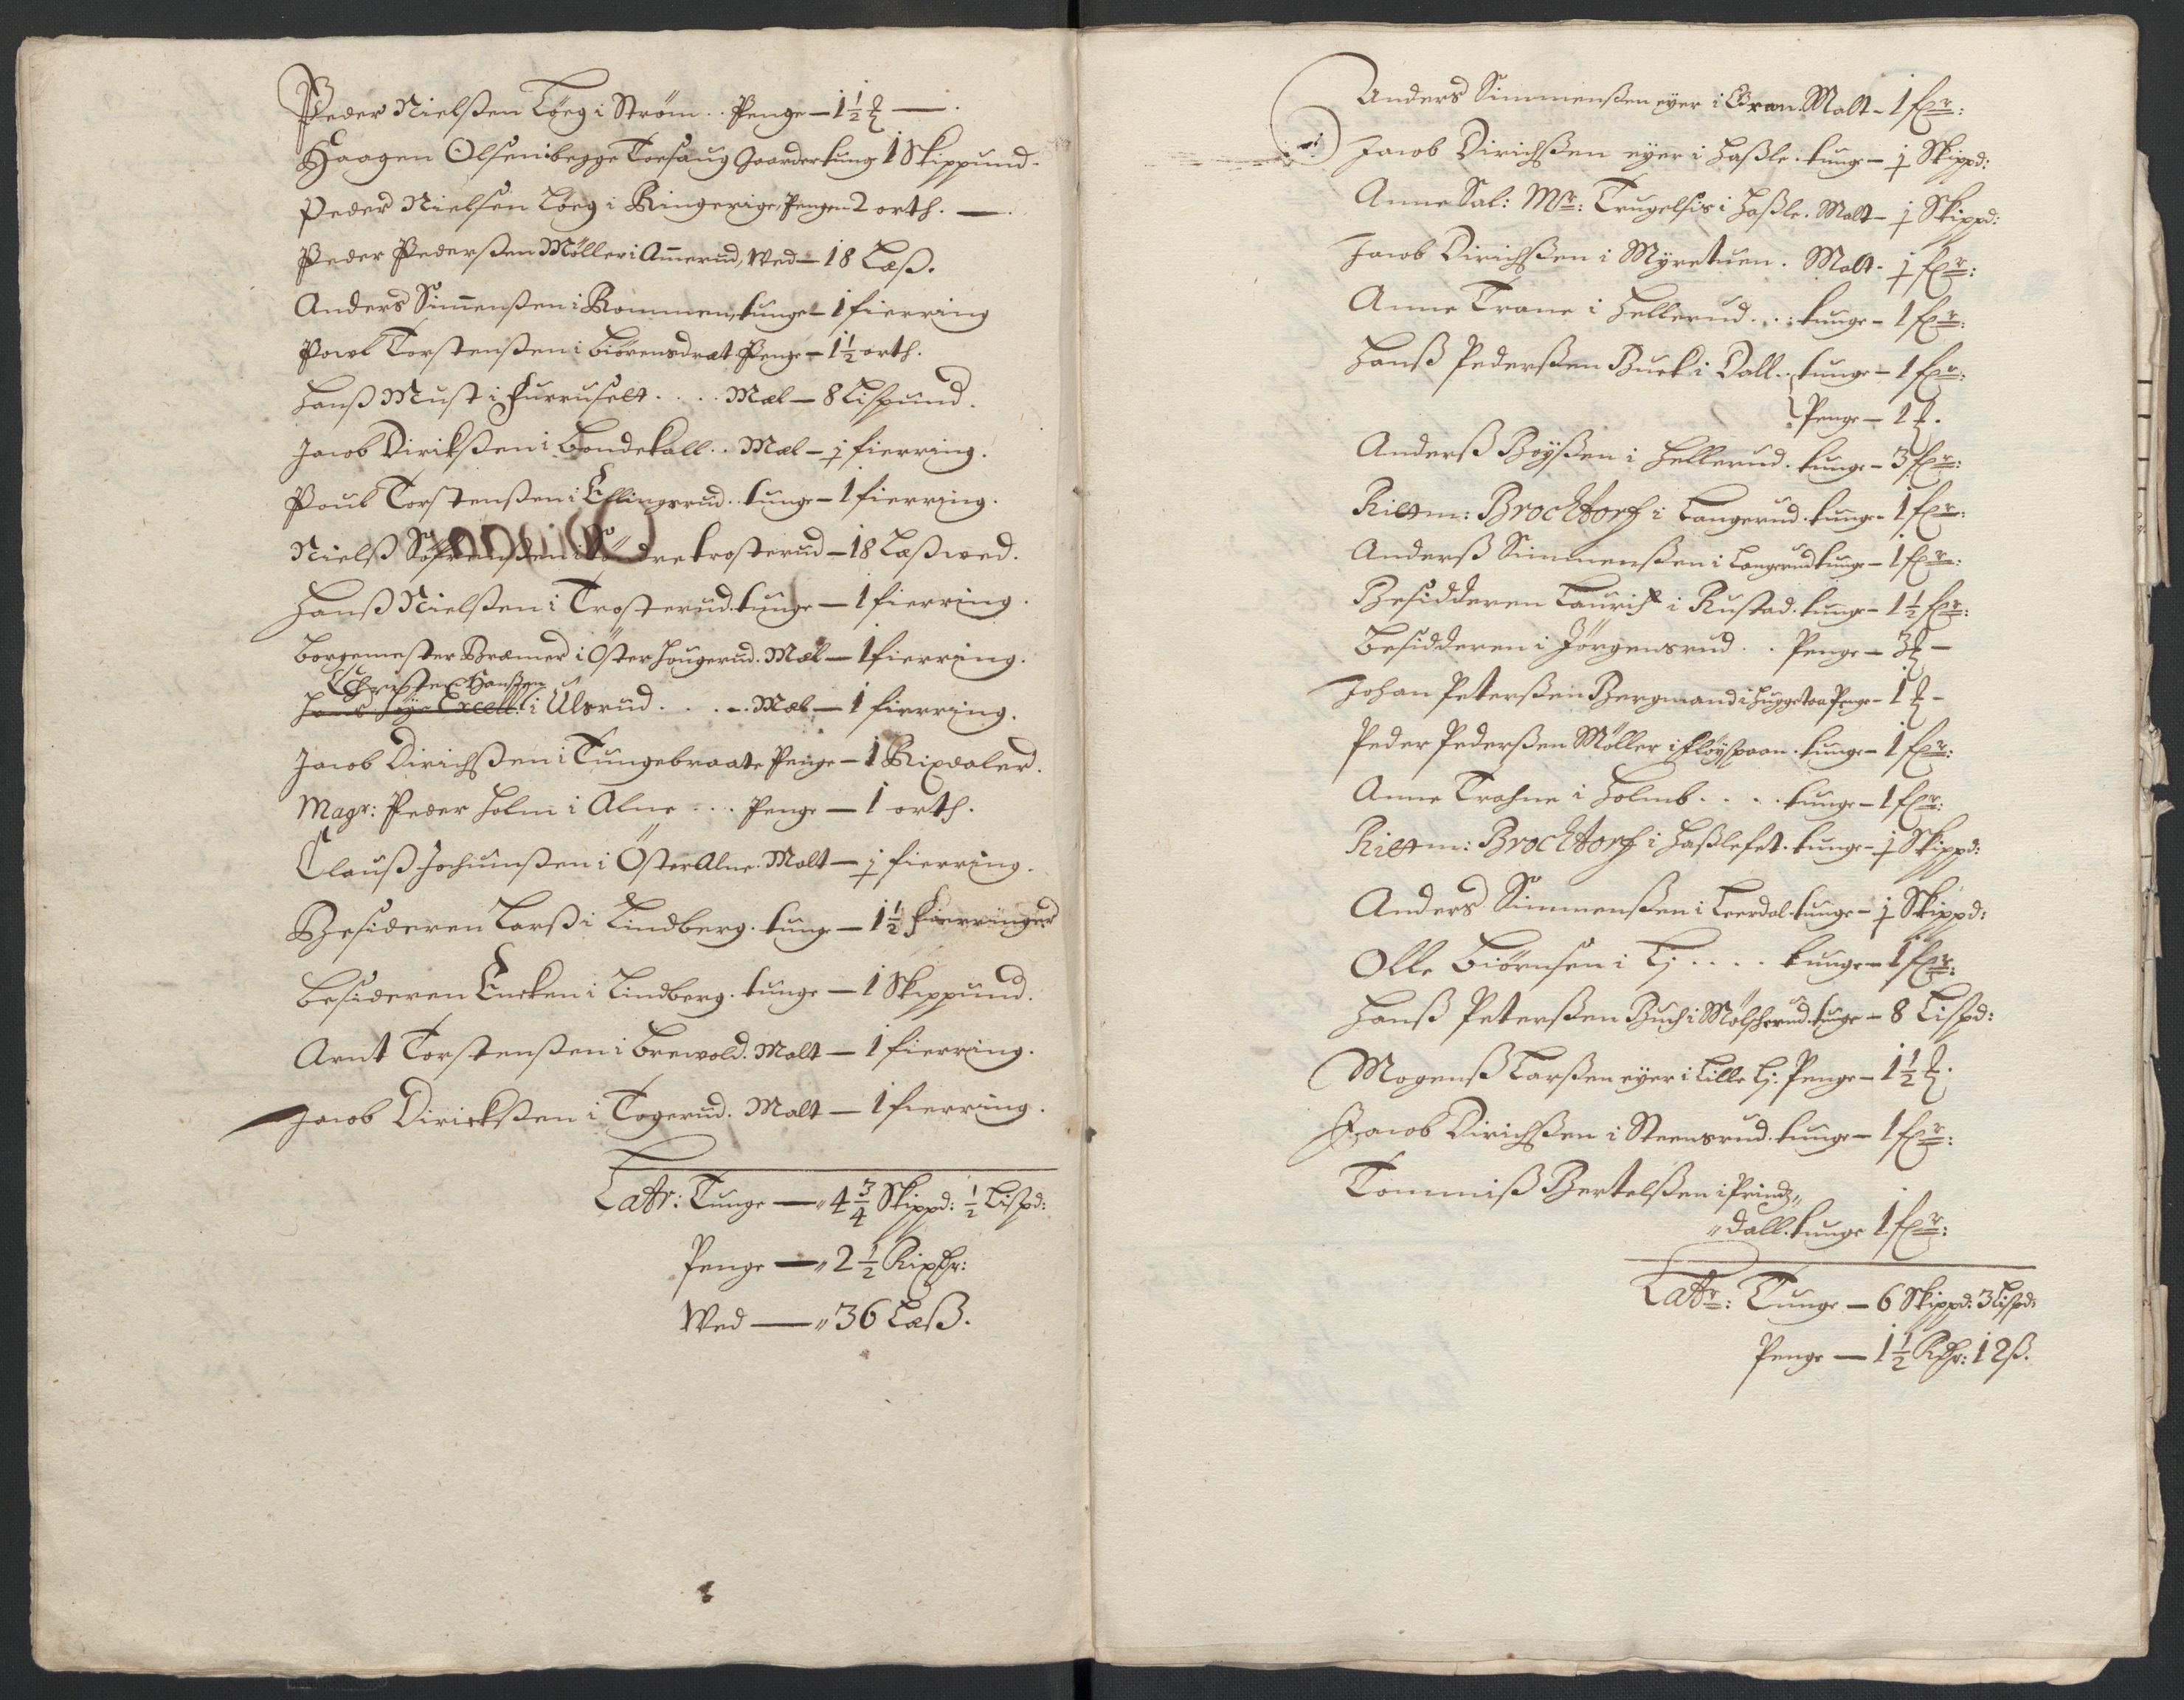 Peder Nielßen Løeg i Strøm .. Penge — 1 1/2 ꝶ —
Haagen Olsen i begge Toesaug Gaarder tunge 1 Skippund.
Peder Nielsen Løeg i Ringerige, Penge 2 orth. —
Peder Pederßen Møller i Amerud, Wed — 18 Læß.
Anders Simenßen i Rommen, tunge — 1 fierring
Powl Torstenßen i Biørensdræt Penge — 1 1/2 orth.
Hanß Must i Furruselt .... Mæl — 8 Lispund.
Jacob Dirikßen i Bondekall .. Mæl — j fierring.
Poul Torstenßen i Ellingsrud .. tunge — 1 fierring.
Nielß Søfrenßen i Søndre trosterud — 18 Læß wed.
Hanß Nielßen i Trosterud. tunge — 1 fierring.
Borgemester Bræmer i Øster Hougerud. Mæl — 1 fierring.
Christen Hanßen
Hans Høye Excell: i Ulsrud .... Mæl — 1 fierring.
Jacob Dirichßen i Tungebraate Penge — 1 Rixdaler.
Magr: Peder Holm i Alne ... Penge — 1 orth.
Clauß Jochumßen i Øster Alne. Malt — j fierring.
Besideren Larß i Lindberg. tunge — 1 1/2 fierringer
Besideren Encken i Lindberg. tunge — 1 Skippund.
Arnt Torstenßen i Brewold. Malt — 1 fierring.
Jacob Dirickßen i Togerud. Malt — 1 fierring.
Latr: Tunge — 4 3/4 Skippd: 1/2 Lispd:
Penge — 2 1/2 Rixdr:
Wed — 36 Læß.
Anders Simmenßen eyer i Gran. Malt — 1 fr:
Jacob Dirichßen eyer i Haßle. tunge — j Skippd:
Anne Sal: Mr: Trugelsis i Haßle. Malt — j Skippd:
Jacob Dirichßen i Myretuen. Malt — j fr:
Anne Trane i Hellerud ... tunge — 1 fr:
Hanß Pederßen Buck i Dall .. tunge — 1 fr:
Penge — 1 ꝶ.
Anderß Boyßen i Hellerud. tunge — 3 fr:
Ritm: Brochtorf i Langerud. tunge — 1 fr:
Anderß Simmenßen i Langerud tunge — 1 fr:
Besidderen Laurits i Rustad. tunge — 1 1/2 fr:
Besidderen i Jørgensrud .. Penge — 3 ꝶ —
Johan Peterßen Bergmand i Huggetoa Penge — 1 ꝶ —
Peder Pederßen Møller i Fløyspaan. tunge — 1 fr:
Anne Trahne i Holmb .... tunge — 1 fr:
Ritm: Brochtorf i Haßleset. tunge — j Skippd:
Anders Simmenßen i Leerdal. tunge — j Skippd:
Olle Biørnsen i Lj .... tunge — 1 fr:
Hanß Peterßen Buch i Mølsherud. tunge — 8 Lispd:
Mogenß Larßen eyer i Lille Lj: Penge — 1 1/2 ꝶ.
Jacob Dirichßen i Steensrud. tunge — 1 fr:
Tommiß Bertelßen i Prindz„
„dall. tunge 1 fr:
Latr: Tunge — 6 Skippd: 3 Lispd:
Penge — 1 1/2 Rdr: 12 ß.